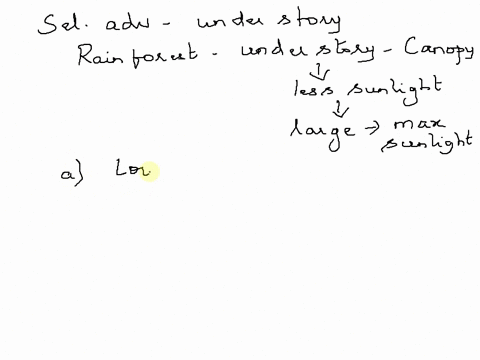 Sel. adv - under story
Rainforest - under story - Canopy
less sunlight
large → max
sunlight
a) Low